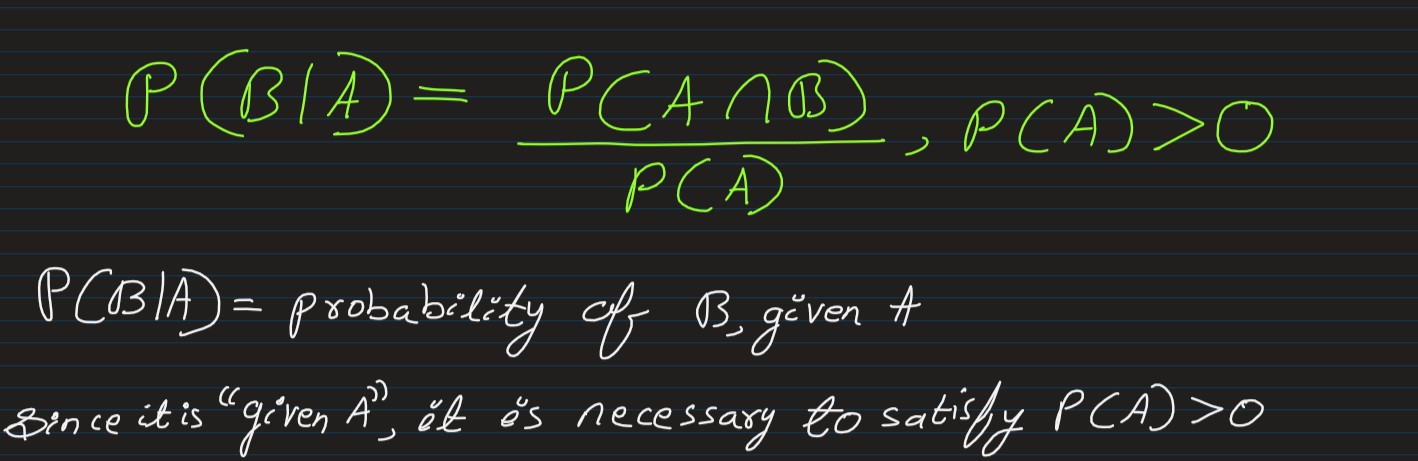 P(B|A) = P(A∩B) / P(A), P(A)>0
P(B|A) = probability of B, given A
Since it is "given A", it is necessary to satisfy P(A)>0